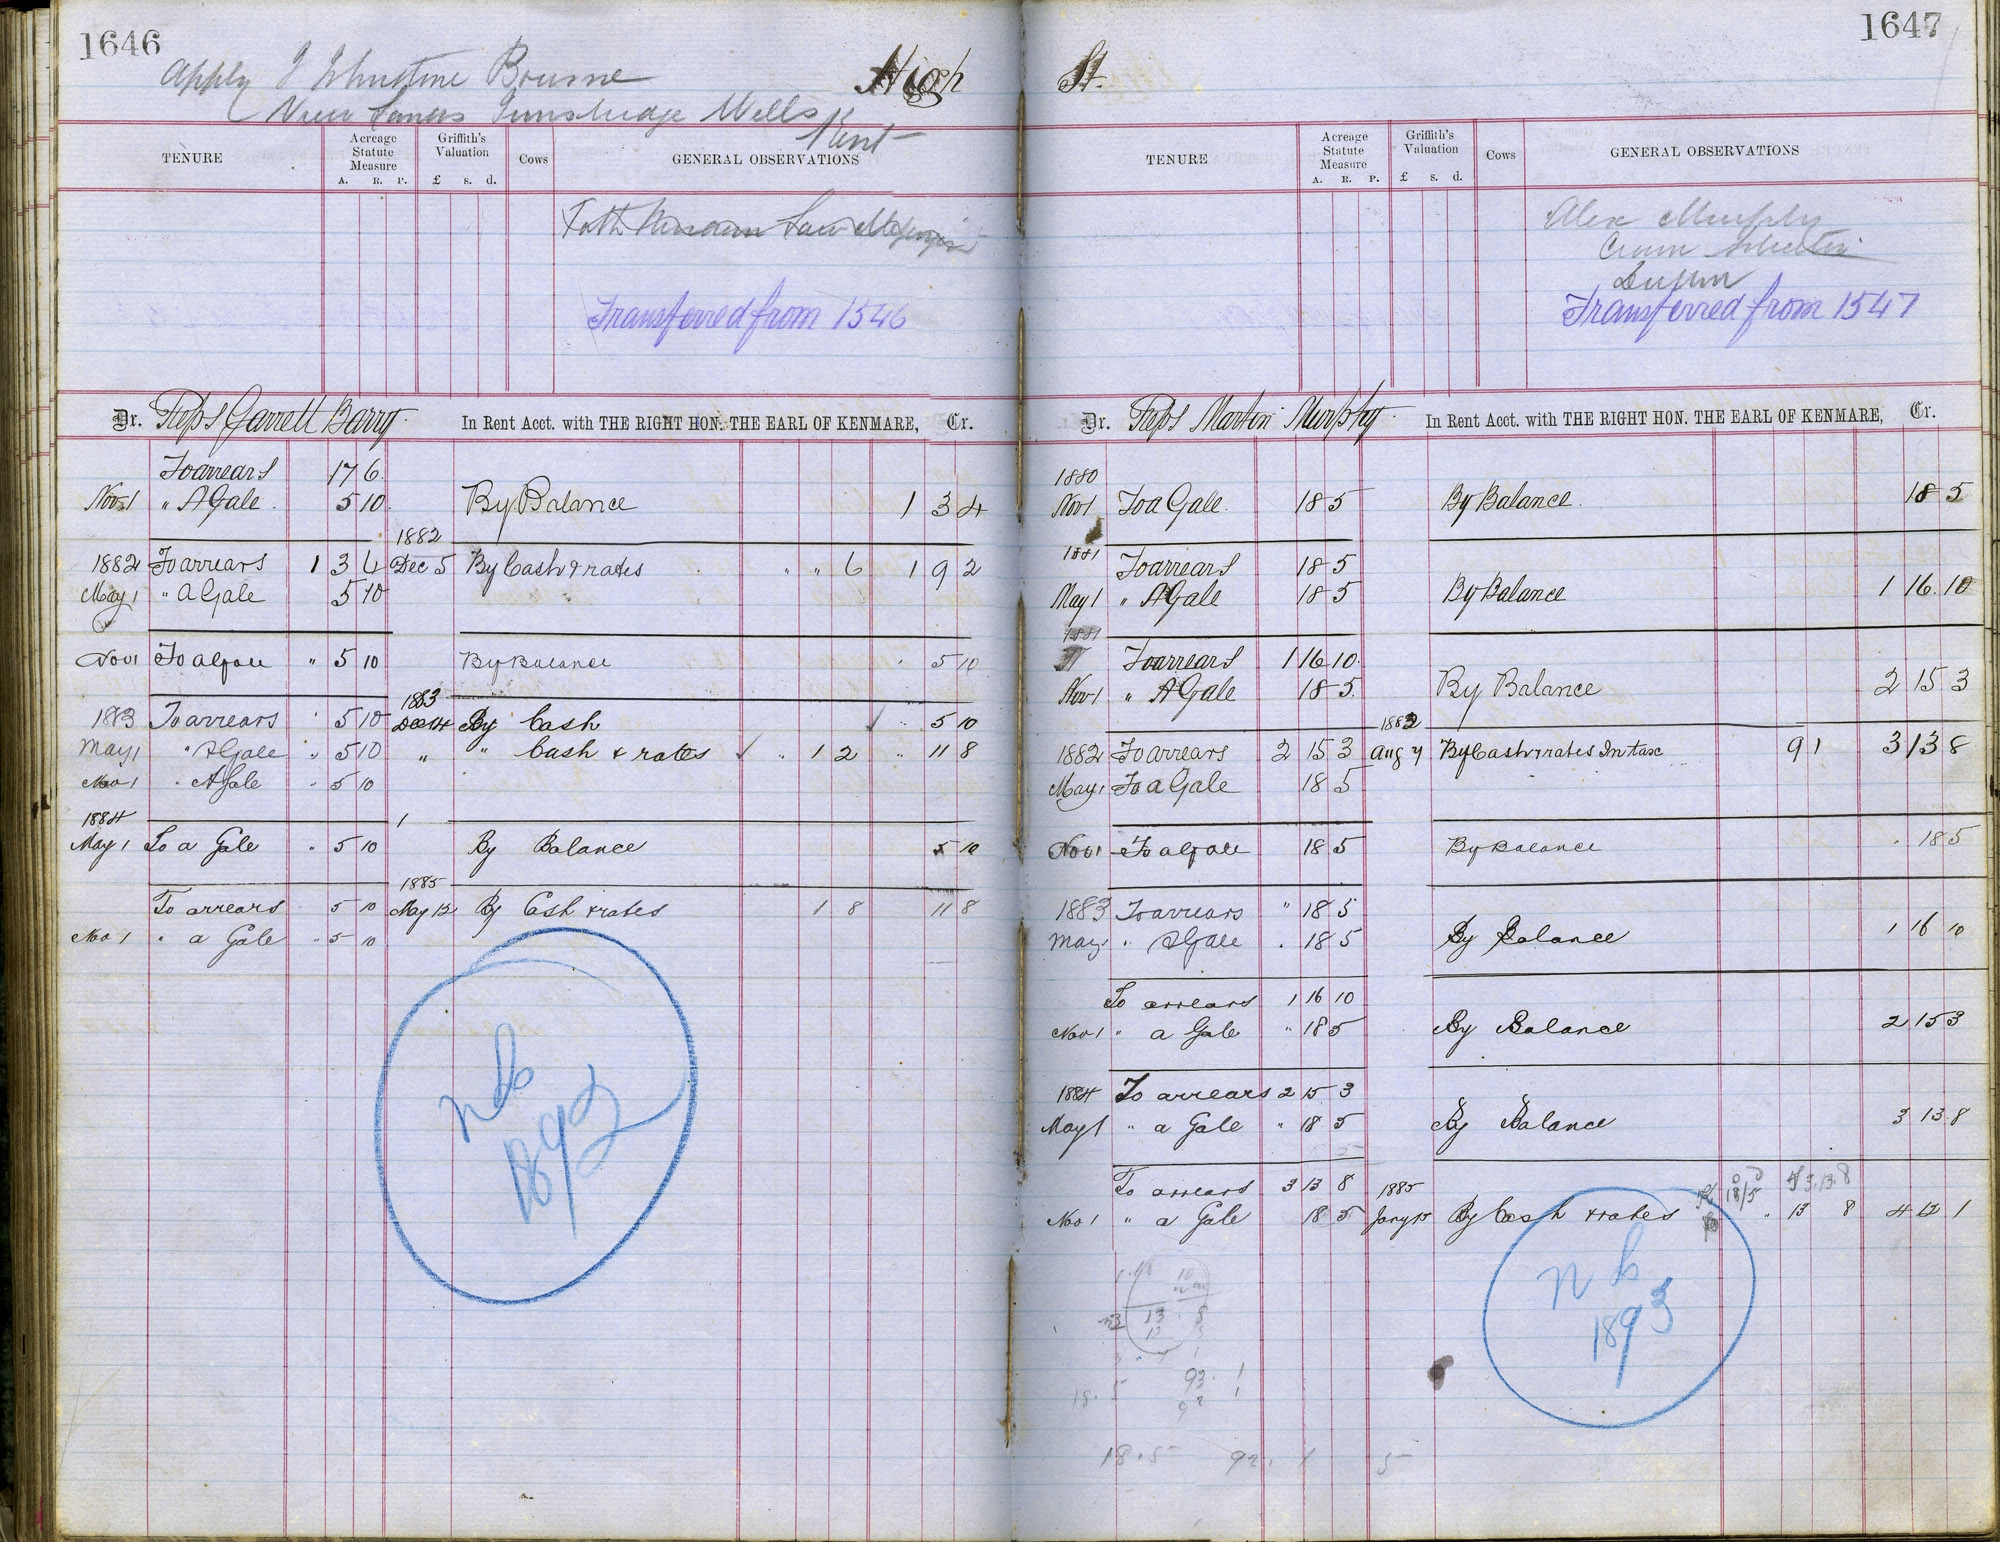 1646
Apply J Johnstone Bourne
View Lands Tunbridge Wells
Kent
High
TENURE
Acreage Statute Measure
A. R. P.
Griffith's Valuation
£ s. d.
Cows
GENERAL OBSERVATIONS
Transferred from 1546
Dr. Reps Garrett Barry In Rent Acct. with THE RIGHT HON. THE EARL OF KENMARE, Cr.
To arrears 17 6
Nov 1 " A Gale 5 10 By Balance 1 3 4
1882
1882 To arrears 1 3 4 Dec 5 By Cash & rates " " 6 1 9 2
May 1 " A Gale 5 10
Nov 1 To a Gale " 5 10 By Balance " 5 10
1883
1883 To arrears " 5 10 Dec 14 By Cash " 5 10
May 1 " A Gale " 5 10 " " Cash & rates " 1 2 " 11 8
Nov 1 " A Gale " 5 10
1884
May 1 To a Gale " 5 10 By Balance 5 10
1885
To arrears " 5 10 May 12 By Cash & rates 1 8 11 8
Nov 1 " a Gale " 5 10
1892
1647
St.
TENURE
Acreage Statute Measure
A. R. P.
Griffith's Valuation
£ s. d.
Cows
GENERAL OBSERVATIONS
Alex Murphy
Transferred from 1547
Dr. Reps Martin Murphy In Rent Acct. with THE RIGHT HON. THE EARL OF KENMARE, Cr.
1880
Nov 1 To a Gale 18 5 By Balance 18 5
1881
To arrears 18 5
May 1 " A Gale 18 5 By Balance 1 16 10
1881
To arrears 1 16 10
Nov 1 " A Gale 18 5 By Balance 2 15 3
1882
1882 To arrears 2 15 3 Aug 7 By Cash & rates In tax 9 1 3 13 8
May 1 To a Gale 18 5
Nov 1 To a Gale 18 5 By Balance " 18 5
1883 To arrears " 18 5
May 1 " A Gale " 18 5 By Balance 1 16 10
To arrears 1 16 10
Nov 1 " a Gale " 18 5 By Balance 2 15 3
1884 To arrears 2 15 3
May 1 " a Gale " 18 5 By Balance 3 13 8
To arrears 3 13 8 1885 18/5 3.13.8
Nov 1 " a Gale 18 5 Jany 15 By Cash & rates " 13 8 4 12 1
1893
13 . 8
93 . 1
18 . 5 92 . 1 5